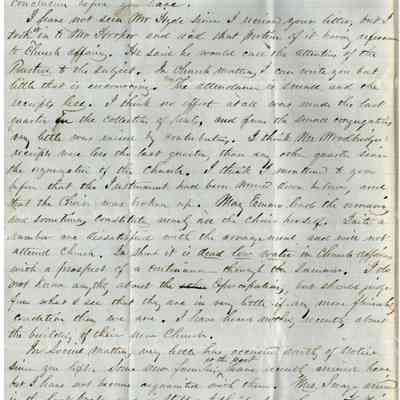 conclusion before you leave.
I have not seen Mr Hyde since I received your letter, but I
took it to Mr Hooker and read that portion of it having reference
to Church affairs. He said he would call the attention of the
Trustees to the subject. In Church matters, I can write you but
little that is encouraging. The attendance is small and the
receipts less. I think no effort at all was made the last
quarter in the collection of rents, and from the small congregations
very little was raised by contribution. I think Mr. Woodbridge's
receipts were less the last quarter, than any other quarter since
the organization of the Church. I think I mentioned to you
before that the Instrument had been moved down below, and
that the Choir was broken up. Miss leads the singing
and sometimes constitutes nearly the whole herself. Quite a
number are dissatisfied with the arrangement and will not
attend Church. In short it is dead low water in Church affairs
with a prospect of a continuance through the Summer. I do
not know anything about the Episcopalians, but should judge
from what I see that they are in very little if any more flourishing
condition than we are. I have heard nothing recently about
the building of their new Church.
In Social Matters, very little has occurred worthy of Notice
since you left. Some new families have recently arrived here
but I have not become acquainted with them. Mrs.